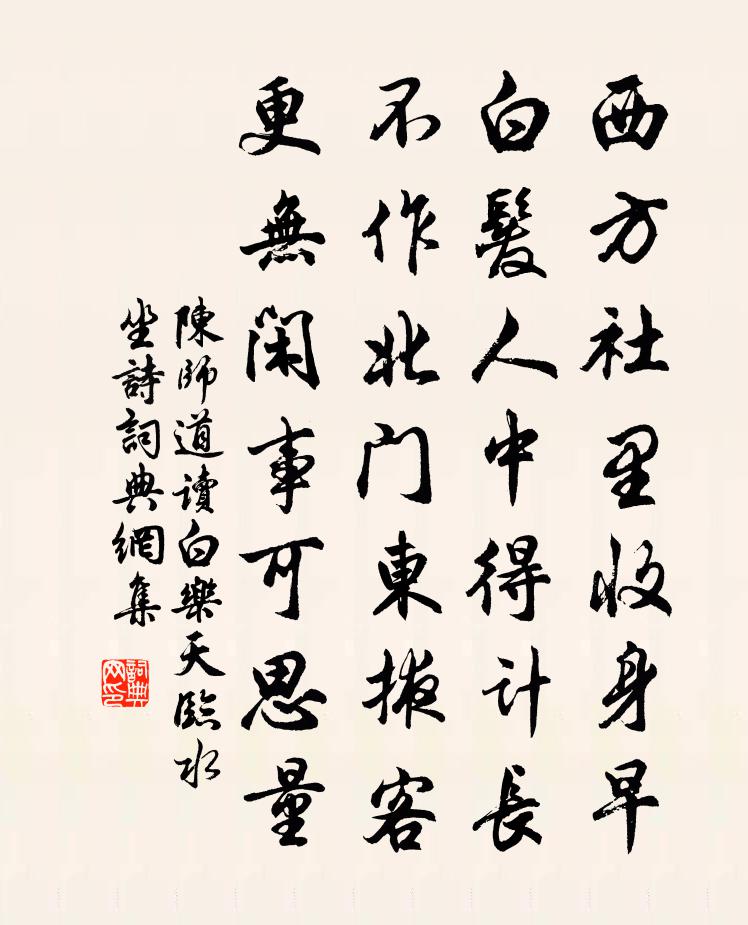 西方社里收身早
白髮人中得計長
不作北门東掖客
更無閑事可思量
陳師道讀白樂天臨水
坐詩詞典網集
詞典
网印